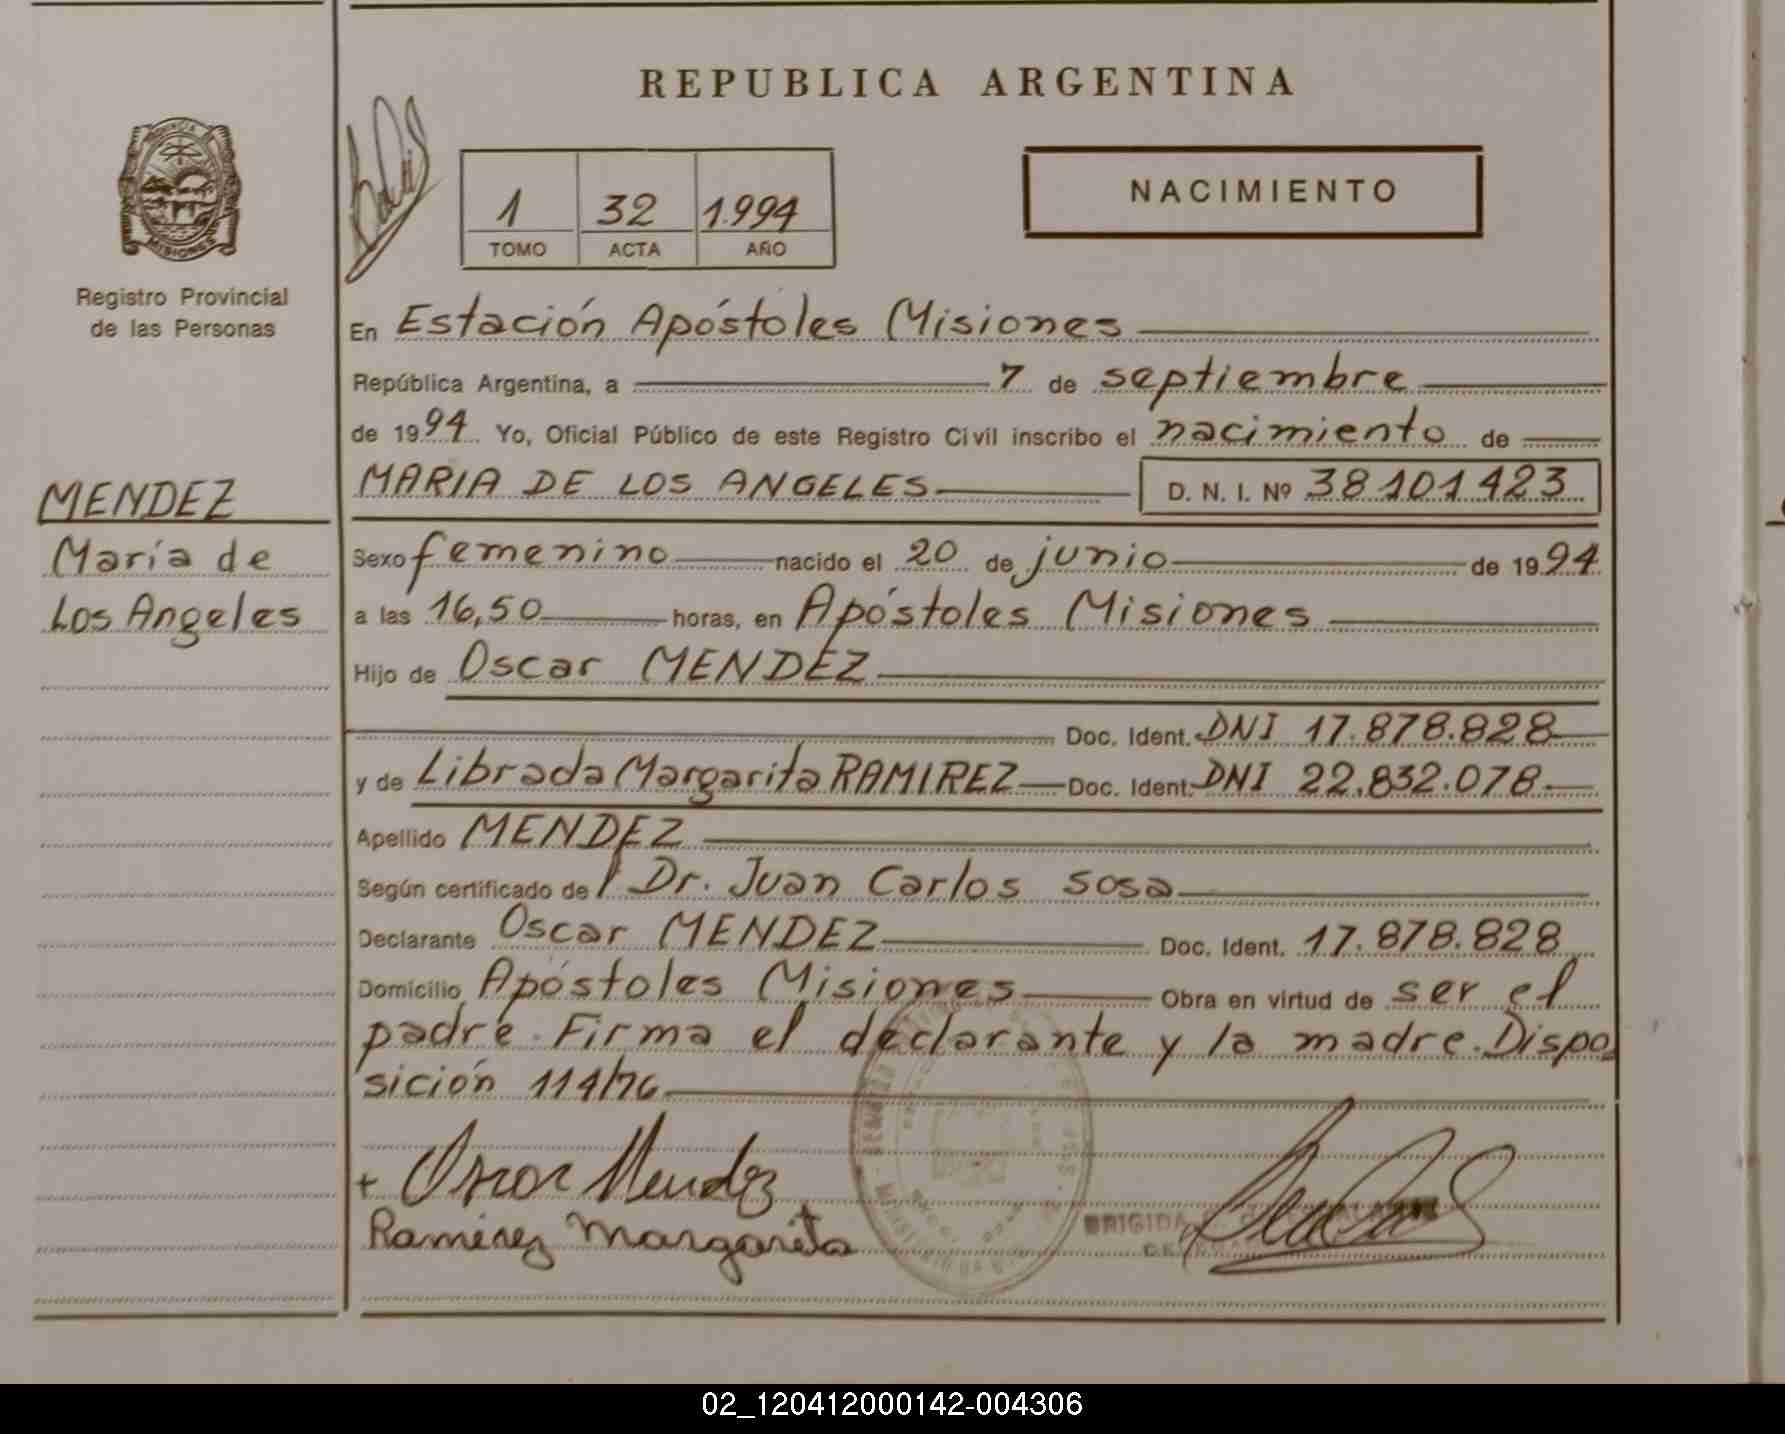 REPUBLICA ARGENTINA
PROVINCIA DE
MISIONES
Registro Provincial
de las Personas
1 32 1.994
TOMO ACTA AÑO
NACIMIENTO
En Estación Apóstoles Misiones
República Argentina, a 7 de septiembre
de 1994 Yo, Oficial Público de este Registro Civil inscribo el nacimiento de
MARIA DE LOS ANGELES D. N. I. Nº 38101423
MENDEZ
María de
Los Angeles
Sexo femenino nacido el 20 de junio de 1994
a las 16,50 horas, en Apóstoles Misiones
Hijo de Oscar MENDEZ
Doc. Ident. DNI 17.878.828
y de Librada Margarita RAMIREZ Doc. Ident. DNI 22.832.078
Apellido MENDEZ
Según certificado de Dr. Juan Carlos Sosa
Declarante Oscar MENDEZ Doc. Ident. 17.878.828
Domicilio Apóstoles Misiones Obra en virtud de ser el
padre. Firma el declarante y la madre. Dispo
sición 114/76
+ Oscar Mendez
Ramirez Margarita
BRIGIDA
02_120412000142-004306